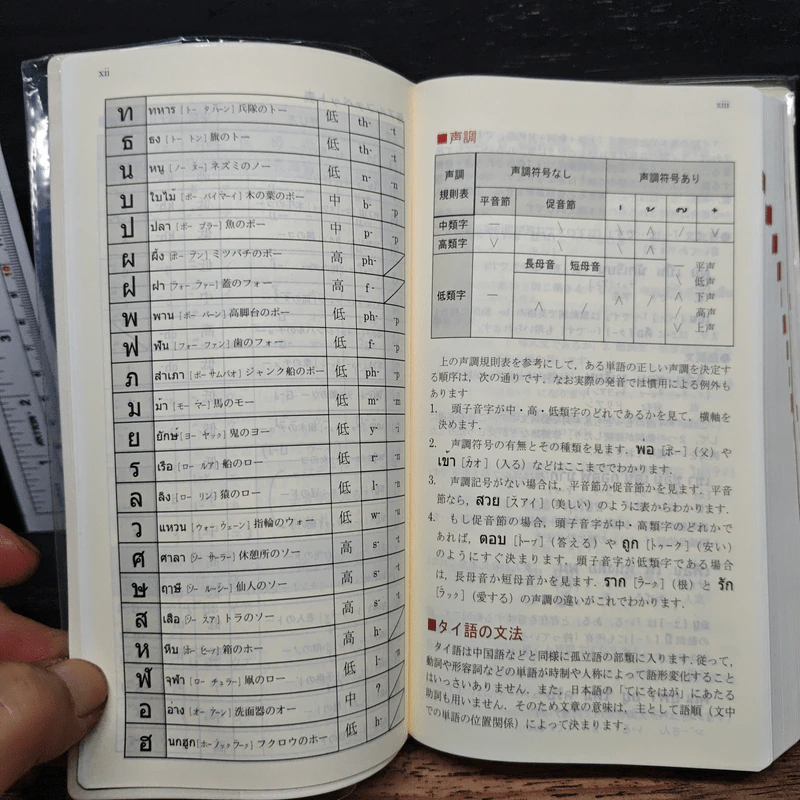 xii
ท ทหาร [トー タハーン] 兵隊のトー 低 th- -t
ธ ธง [トー トン] 旗のトー 低 th- -t
น หนู [ノー ヌー] ネズミのノー 低 n- -n
บ ใบไม้ [ボー バイマーイ] 木の葉のボー 中 b- -p
ป ปลา [ポー プラー] 魚のポー 中 p- -p
ผ ผึ้ง [ポー プン] ミツバチのポー 高 ph-
ฝ ฝา [フォー ファー] 蓋のフォー 高 f-
พ พาน [ポー パーン] 高脚台のポー 低 ph- -p
ฟ ฟัน [フォー ファン] 歯のフォー 低 f- -p
ภ สำเภา [ポーサムパオ] ジャンク船のポー 低 ph- -p
ม ม้า [モー マー] 馬のモー 低 m- -m
ย ยักษ์ [ヨー ヤック] 鬼のヨー 低 y- -i
ร เรือ [ロー ルア] 船のロー 低 r- -n
ล ลิง [ロー リン] 猿のロー 低 l- -n
ว แหวน [ウォー ウェーン] 指輪のウォー 低 w- -u
ศ ศาลา [ソー サーラー] 休憩所のソー 高 s- -t
ษ ฤาษี [ソー ルーシー] 仙人のソー 高 s- -t
ส เสือ [ソー スア] トラのソー 高 s- -t
ห หีบ [ホー ヒープ] 箱のホー 高 h-
ฬ จุฬา [ロー チュラー] 凧のロー 低 l- -n
อ อ่าง [オー アーン] 洗面器のオー 中 ?
ฮ นกฮูก [ホー ノックフーク] フクロウのホー 低 h-
xiii
■声調
声調規則表 声調符号なし 声調符号あり
平音節 促音節 ่ ้ ๊ ๋
中類字 — \ \ ∧ / ∨
高類字 ∨ \ \ ∧
長母音 短母音
低類字 — ∧ / ∧ /
— 平声
\ 低声
∧ 下声
/ 高声
∨ 上声
上の声調規則表を参考にして，ある単語の正しい声調を決定す
る順序は，次の通りです．なお実際の発音では慣用による例外も
あります
1. 頭子音字が中・高・低類字のどれであるかを見て，横軸を
決めます．
2. 声調符号の有無とその種類を見ます．พ่อ [ポー]（父）や
เข้า [カオ]（入る）などはここまででわかります．
3. 声調記号がない場合は，平音節か促音節かを見ます．平音
節なら，สวย [スアイ]（美しい）のように表からわかります．
4. もし促音節の場合，頭子音字が中・高類字のどれかで
あれば，ตอบ [トープ]（答える）や ถูก [トゥーク]（安い）
のようにすぐ決まります．頭子音字が低類字である場合
は，長母音か短母音かを見ます．ราก [ラーク]（根）と รัก
[ラック]（愛する）の声調の違いがこれでわかります．
■タイ語の文法
タイ語は中国語などと同様に孤立語の部類に入ります．従って，
動詞や形容詞などの単語が時制や人称によって語形変化すること
はいっさいありません．また，日本語の「てにをはが」にあたる
助詞も用いません．そのため文章の意味は，主として語順（文中
での単語の位置関係）によって決まります．